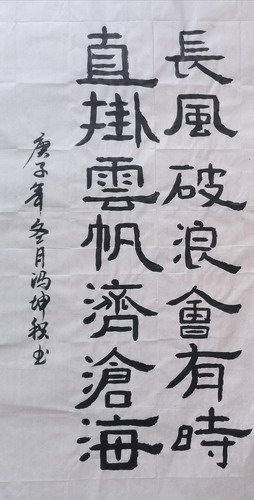 長風破浪會有時
直掛雲帆濟滄海
庚子年冬月冯坤秋书